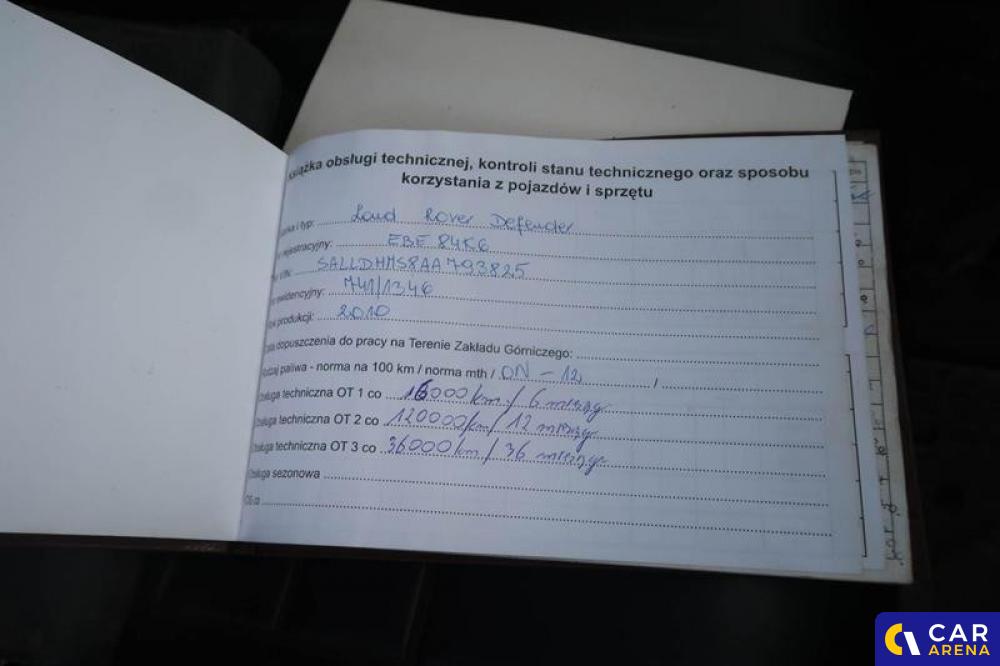 Książka obsługi technicznej, kontroli stanu technicznego oraz sposobu
korzystania z pojazdów i sprzętu
i typ: Land Rover Defender
rejestracyjny: EBE 84K6
VIN: SALLDHMS8AA793825
ewidencyjny: 741/1346
produkcji: 2010
dopuszczenia do pracy na Terenie Zakładu Górniczego:
Rodzaj paliwa - norma na 100 km / norma mth / ON - 12 /
Obsługa techniczna OT 1 co 16000 km / 6 miesięcy
Obsługa techniczna OT 2 co 120000 km / 12 miesięcy
Obsługa techniczna OT 3 co 36000 km / 36 miesięcy
Obsługa sezonowa
OS co
CAR
ARENA